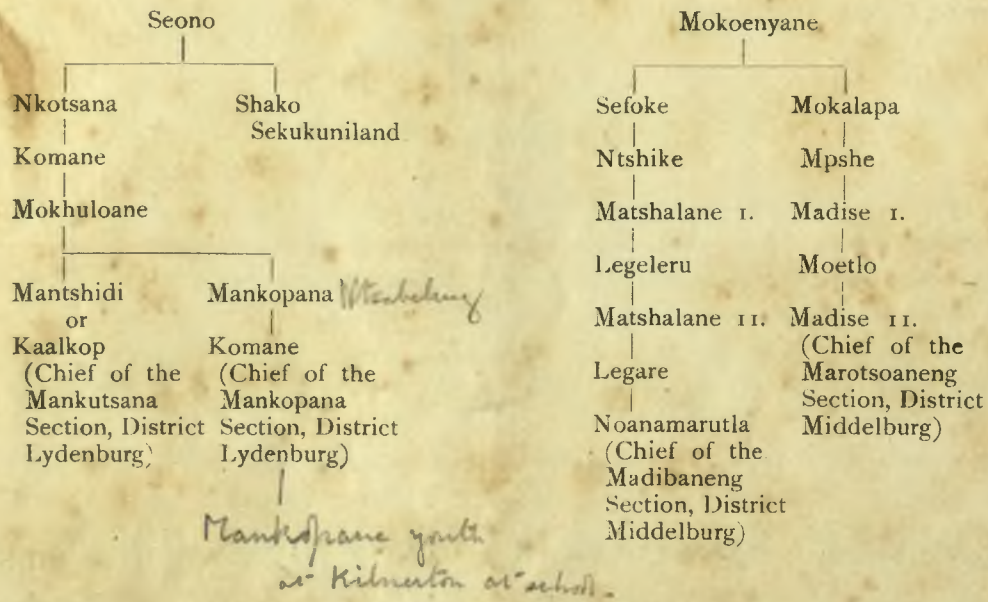 Seono
Nkotsana
Shako
Sekukuniland
Komane
Mokhuloane
Mantshidi
or
Kaalkop
(Chief of the
Mankutsana
Section, District
Lydenburg)
Mankopana
Komane
(Chief of the
Mankopana
Section, District
Lydenburg)
Mankopane youth
at Kilnerton at school.
Mokoenyane
Sefoke
Ntshike
Matshalane I.
Legeleru
Matshalane II.
Legare
Noanamarutla
(Chief of the
Madibaneng
Section, District
Middelburg)
Mokalapa
Mpshe
Madise I.
Moetlo
Madise II.
(Chief of the
Marotsoaneng
Section, District
Middelburg)